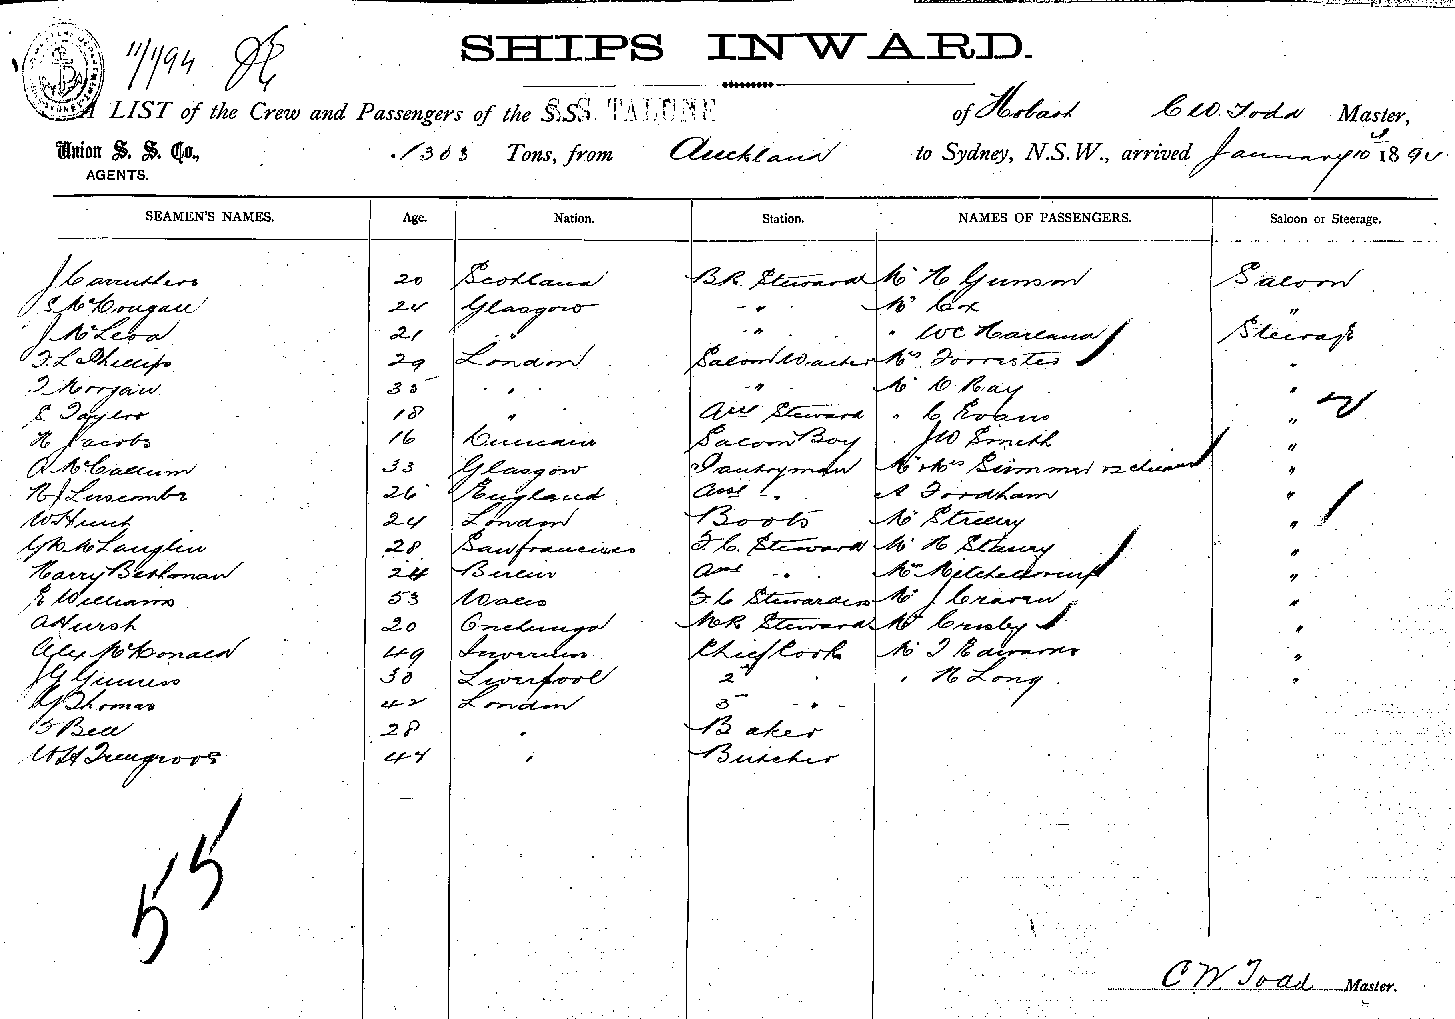 11/1/94
SHIPS INWARD.
A LIST of the Crew and Passengers of the S.S. S.S. TALUNE of Hobart C W Todd Master,
Union S. S. Co., 1303 Tons, from Auckland to Sydney, N.S.W., arrived January 10 1894
AGENTS.
SEAMEN'S NAMES. Age. Nation. Station. NAMES OF PASSENGERS. Saloon or Steerage.
J Carruthers 20 Scotland BR Steward Mr H Gunson Saloon
S McDougall 24 Glasgow - " Mr Cox "
J McLeod 21 " - " " WC Harland Steerage
F L Phillips 29 London Saloon Waiter Mrs Forrester "
T Morgan 35 " " Mr D Ray "
S Taylor 18 " Asst Steward " C Evans "
H Jacobs 16 Dunedin Saloon Boy JW Smith "
A McCallum 33 Glasgow Pantryman Mr & Mrs "
R J Luscombe 26 England Asst " A Fordham "
W Hunt 24 London Boots Mr "
McLauglin 28 Sanfrancisco F.C. Steward Mr H "
Harry 24 Berlin Asst " Mrs "
E Williams 53 Wales F C Stewardess Mr J Craven "
A Hurst 20 Onehunga MR Steward Mr Crosby "
Alex McDonald 49 Chief Cook Mr T Edwards "
J G Guiness 30 Liverpool 2 " " H Long "
Thomas 42 London 3 - " -
Bell 28 " Baker
W H Trengrove 44 " Butcher
55
C W Todd Master.